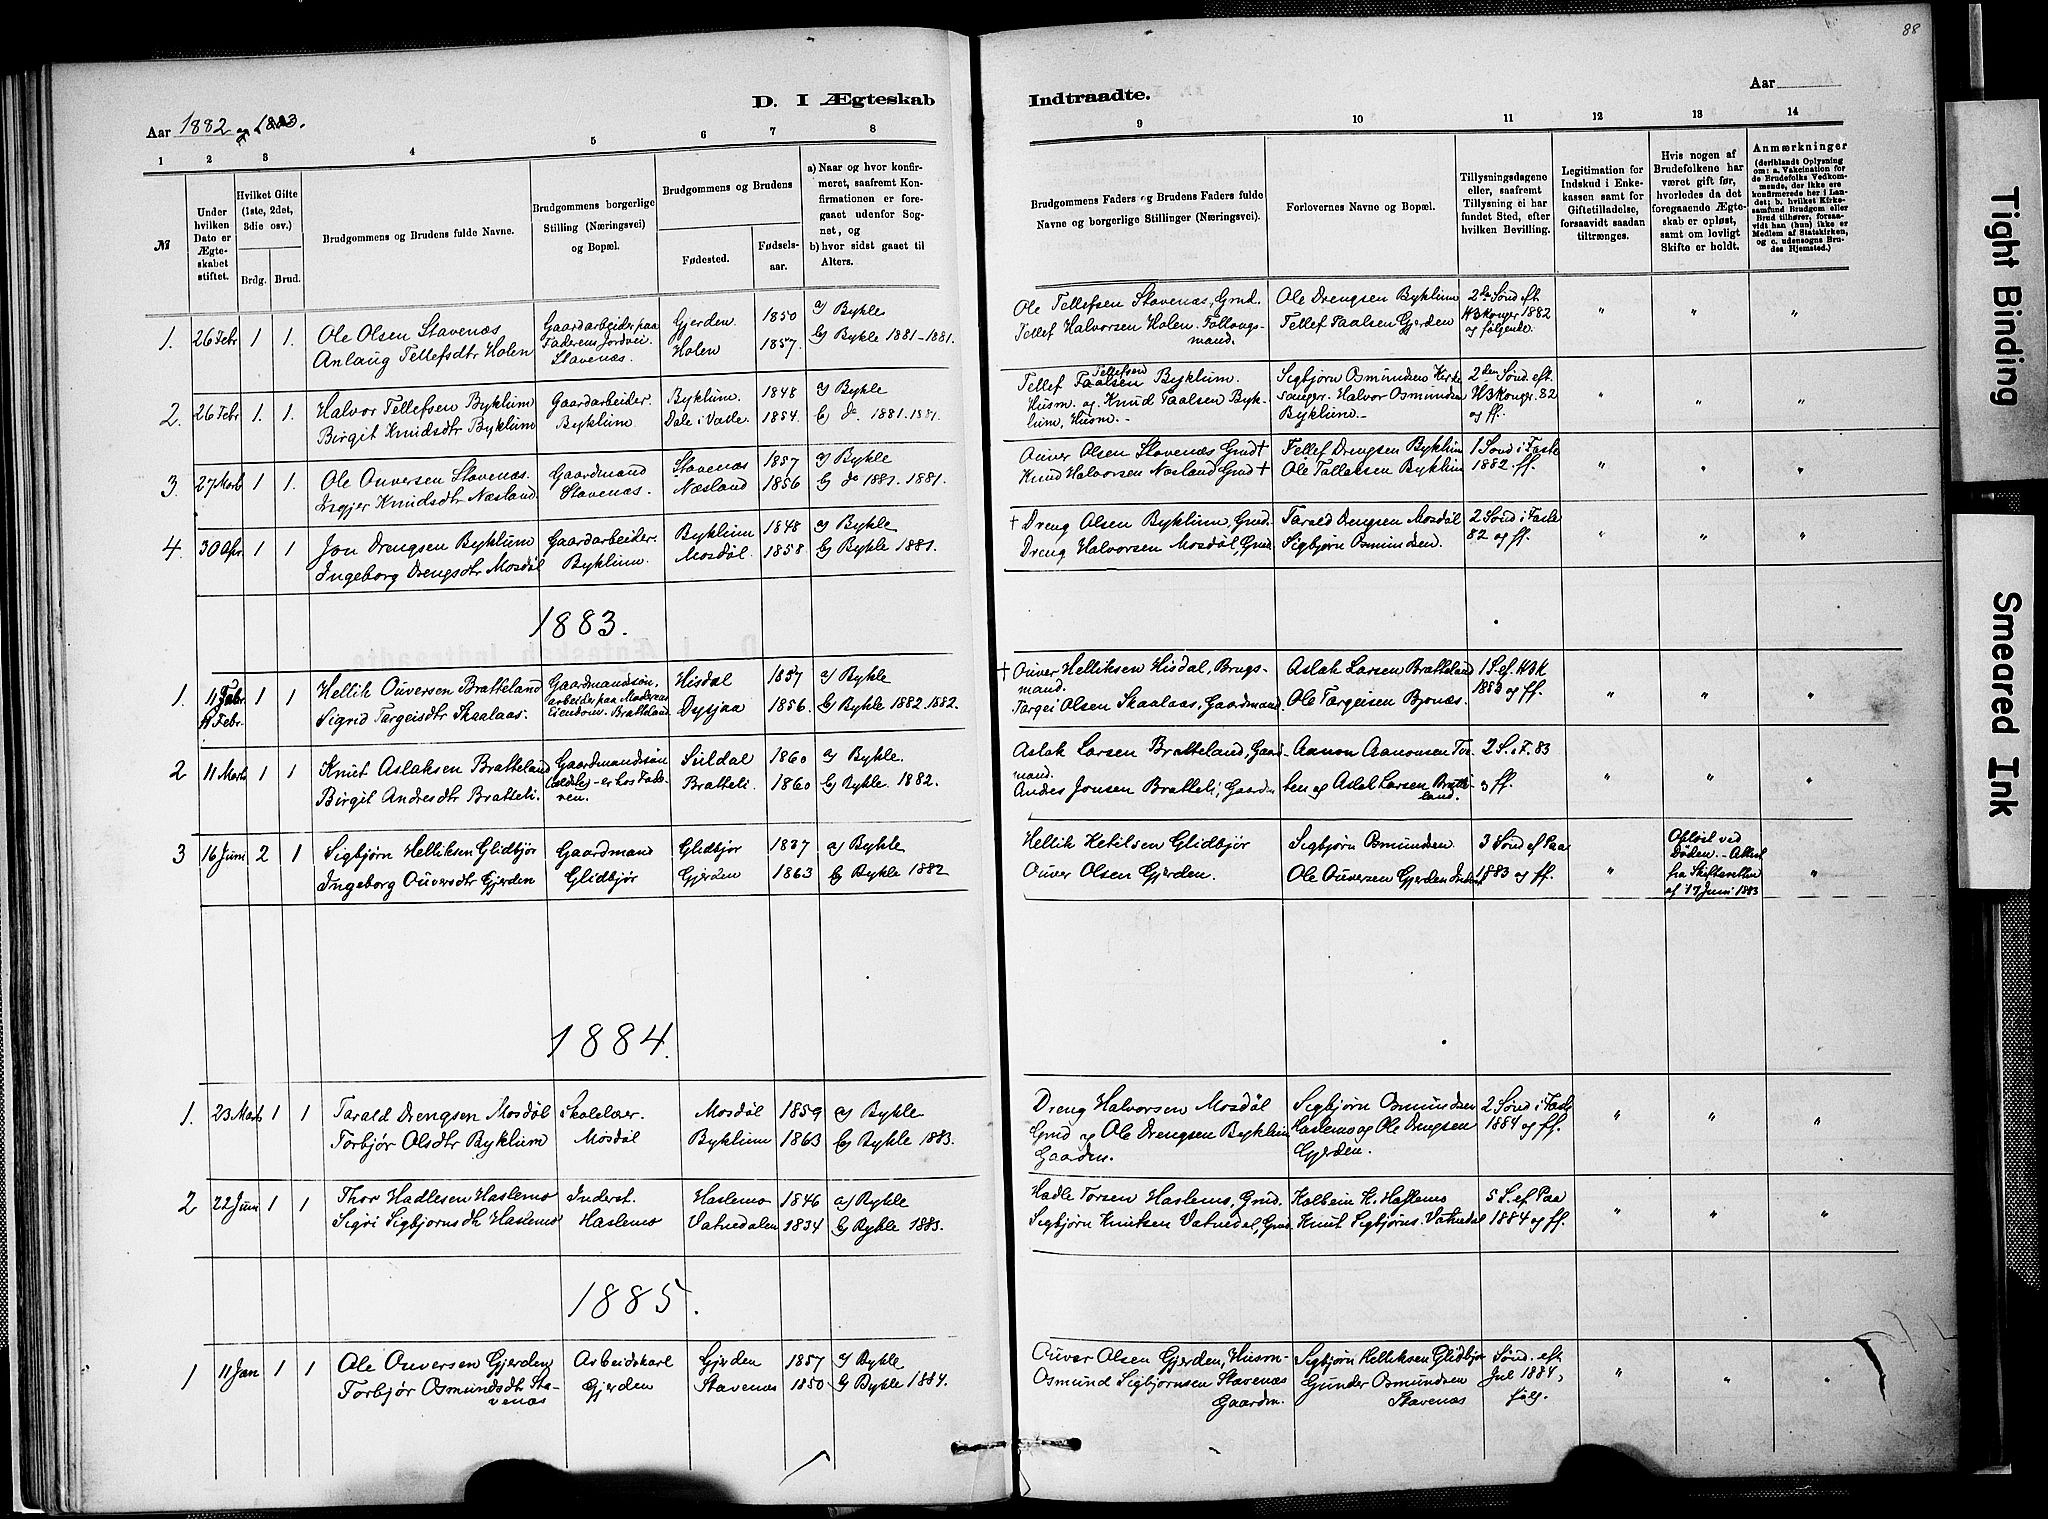 88
D. I Ægteskab Indtraadte.
Aar 1882 og 1883.
Aar
1 2 3 4 5 6 7 8 9 10 11 12 13 14
№
Under hvilken Dato er Ægteskabet stiftet.
Hvilket Gifte (1ste, 2det, 3die osv.)
Brdg. Brud.
Brudgommens og Brudens fulde Navne.
Brudgommens borgerlige Stilling (Næringsvei) og Bopæl.
Brudgommens og Brudens
Fødested.
Fødselsaar.
a) Naar og hvor konfirmeret, saafremt Konfirmationen er foregaaet udenfor Sognet, og
b) hvor sidst gaaet til Alters.
Brudgommens Faders og Brudens Faders fulde Navne og borgerlige Stillinger (Næringsvei).
Forlovernes Navne og Bopæl.
Tillysningsdagene eller, saafremt Tillysning ei har fundet Sted, efter hvilken Bevilling.
Legitimation for Indskud i Enkekassen samt for Giftetilladelse, forsaavidt saadan tiltrænges.
Hvis nogen af Brudefolkene har været gift før, hvorledes da det foregaaende Ægteskab er opløst, samt om lovligt Skifte er holdt.
Anmærkninger (deriblandt Oplysning om: a. Vakcination for de Brudefolks Vedkommende, der ikke ere konfirmerede her i Landet; b. hvilket Kirkesamfund Brudgom eller Brud tilhører, forsaavidt han (hun) ikke er Medlem af Statskirken, og c. udensogns Brudes Hjemsted.)
1. 26 Febr 1 1. Ole Olsen Stavenæs Gaardarbeider paa Faderens Jordvei Stavenæs. Gjerden. 1850 a) Bykle
Anlaug Tellefsdtr Holen Holen 1857. b) Bykle 1881-1881.
Ole Tellefsen Stavenæs, Grnd. Ole Drengsen Byklum 2den Sønd eft
Tellef Halvorsen Holen. Follaugsmand. Tellef Taalsen Gjerden H3Konger 1882 og følgende. " " "
2. 26 Febr 1. 1. Halvor Tellefsen Byklum Gaardarbeider. Byklum. 1848 a) Bykle
Birgit Knudsdtr Byklum Byklum Dale i Valle 1854. b) do 1881.1881.
Tellef Tellefsen Taalsen Byklum. Sigbjørn Osmundsen Kirke 2den Sønd. eft.
Husm. og Knud Taalsen Byk- sanger. Halvor Osmundsen H3Konger. 82
lum, Husm. - Byklum.- og ff. " " "
3. 27 Marts 1 1. Ole Ouversen Stavenæs. Gaardmand Stavenæs 1857 a) Bykle
Ingjer Knudsdtr Næsland Stavenæs. Næsland 1856 b) do 1881. 1881.
Ouver Olsen Stavenæs Grnd † Tellef Drengsen Byklum 1 Sønd i Faste
Knud Halvorsen Næsland Grnd † Ole Tallaksen Byklum 1882. ff. " " "
4. 30 Apr. 1 1 Jon Drengsen Byklum Gaardarbeider. Byklum 1848 a) Bykle
Ingeborg Drengsdtr Mosdøl Byklum. Mosdøl. 1858 b) Bykle 1881.
† Dreng Olsen Byklum, Grnd. Tarald Drengsen Mosdøl 2 Sønd i Faste
Dreng Halvorsen Mosdøl, Grnd Sigbjørn Osmundsen. 82 og ff. " " "
1883.
1. 18 Febr. 1 1 Hellik Ouversen Bratteland Gaardmandssøn, arbeider paa Moderens Eiendom. Bratteland Hisdal 1857 a) Bykle
Sigrid Targeisdtr Skaalaas. Dysjaa 1856. b) Bykle 1882 1882.
† Ouver Helliksen Hisdal, Brugs- Aslak Larsen Bratteland 1 S. ef. H3K
mand. 1883 og ff.
Targei Olsen Skaalaas, Gaardmand Ole Targeisen Bjonæs. " " "
2 11 Marts 1 1 Knut Aslaksen Bratteland Gaardmandssøn Suldal 1860 a) Bykle.
Birgit Andresdtr Bratteli. er hos Faderen. Bratteli. 1860 b) Bykle. 1882.
Aslak Larsen Bratteland, Gaard- Aanon Aanonsen Tve- 2 S. i F. 83
mand.
Andres Jonsen Bratteli, Gaardm ten og Aslak Larsen Bratteland. og ff. " " "
3 16 Juni 2 1 Sigbjørn Helliksen Glidbjør Gaardmand Glidbjør 1837 a) Bykle
Ingeborg Ouversdtr Gjerden Glidbjør Gjerden 1863 b) Bykle 1882
Hellik Ketilsen Glidbjør Sigbjørn Osmundsen 3 Sønd ef Paa
Ouver Olsen Gjerden. Ole Ouversen Gjerden 1883 og ff. "
Opløst ved Døden. - Attest fra Skifteretten af 17 Juni 1883 "
1884.
1. 23 Marts 1 1 Tarald Drengsen Mosdøl Skolelær. Mosdøl 1859 a) Bykle
Torbjør Olsdtr Byklum Mosdøl Byklum 1863 b) Bykle 1883.
Dreng Halvorsen Mosdøl Sigbjørn Osmundsen 2 Sønd i Faste
Grnd og Ole Drengsen Byklum Haslemo og Ole Drengsen 1884 og ff.
Gaardm. Gjerden. " " "
2 22 Juni 1 1 Thor Hadlesen Haslemo Inderst. Haslemo 1846 a) Bykle
Sigri Sigbjørnsdtr Haslemo Haslemo Vatnedalen 1834 b) Bykle 1883.
Hadle Torsen Haslemo, Grnd. Kolbein H. Haslemo 5 S. ef Paa
Sigbjørn Knutsen Vatnedal, Grnd. Knut Sigbjørns. Vatnedal 1884 og ff. " " "
1885.
1 11 Jan 1 1 Ole Ouversen Gjerden Arbeidskarl Gjerden 1857 a) Bykle
Torbjør Osmundsdtr Sta- Gjerden Stavenæs 1850 b) Bykle 1884.
venæs
Ouver Olsen Gjerden, Husm- Sigbjørn Helliksen Glidbjør Sønd. eft
Osmund Sigbjørnsen Stavenæs Gunder Osmundsen Jul 1884,
Gaardm. Stavenæs følg. " " "
Tight Binding
Smeared Ink